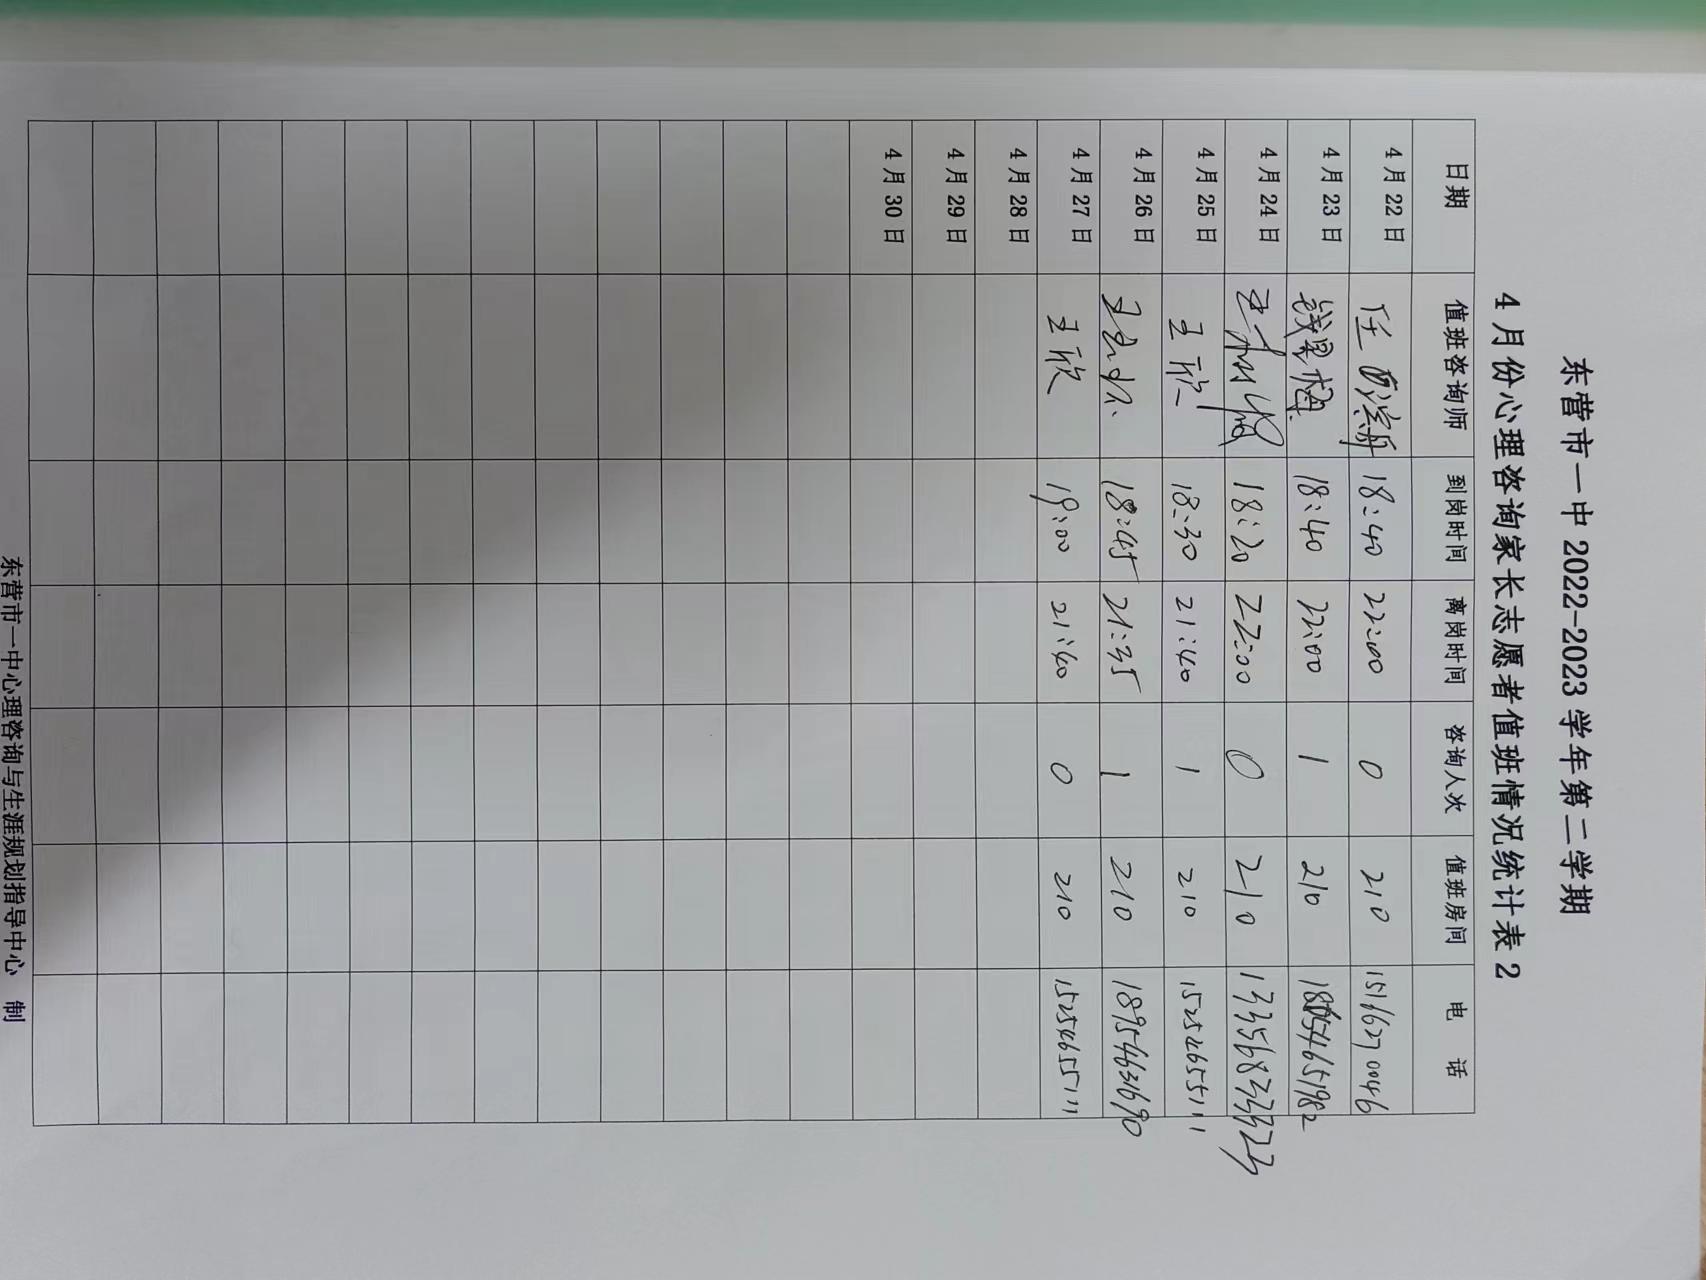 东营市一中 2022-2023 学年第二学期
4 月份心理咨询家长志愿者值班情况统计表 2
日期 值班咨询师 到岗时间 离岗时间 咨询人次 值班房间 电 话
4 月 22 日 18:40 22:00 0 210 15116270046
4 月 23 日 钱果梅 18:40 22:00 1 210 18054651982
4 月 24 日 18:20 22:00 0 210 13356833323
4 月 25 日 王欣 18:30 21:40 1 210 15254655111
4 月 26 日 18:45 21:35 1 210 18954631690
4 月 27 日 王欣 19:00 21:40 0 210 15254655111
4 月 28 日
4 月 29 日
4 月 30 日
东营市一中心理咨询与生涯规划指导中心 制